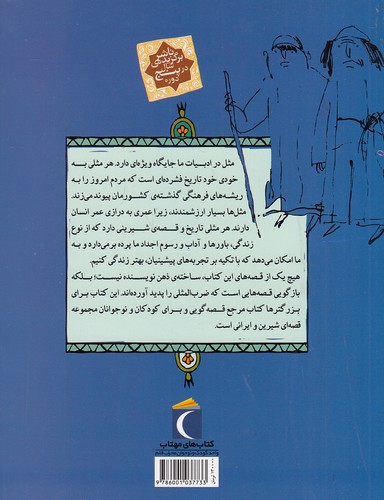 ناشر
برگزیده‌ی
سال
در پنج
دوره
مثل در ادبیات ما جایگاه ویژه‌ای دارد. هر مثلی بـــه
خودی خود تاریخ فشرده‌ای است که مردم امروز را به
ریشه‌های فرهنگی گذشته‌ی کشورمان پیوند می‌زند.
مثل‌ها بسیار ارزشمندند، زیرا عمری به درازی عمر انسان
دارند. هر مثلی تاریخ و قصه‌ی شیرینی دارد که از نوع
زندگی، باورها و آداب و رسوم اجداد ما پرده برمی‌دارد و به
ما امکان می‌دهد که با تکیه بر تجربه‌های پیشینیان، بهتر زندگی کنیم.
هیچ یک از قصه‌های این کتاب، ساخته‌ی ذهن نویسنده نیست؛ بلکه
بازگویی قصه‌هایی است که ضرب‌المثلی را پدید آورده‌اند. این کتاب برای
بزرگترها کتاب مرجع قصه‌گویی و برای کودکان و نوجوانان مجموعه
قصه‌ای شیرین و ایرانی است.
کتاب‌های مهتاب
9 786001 037733